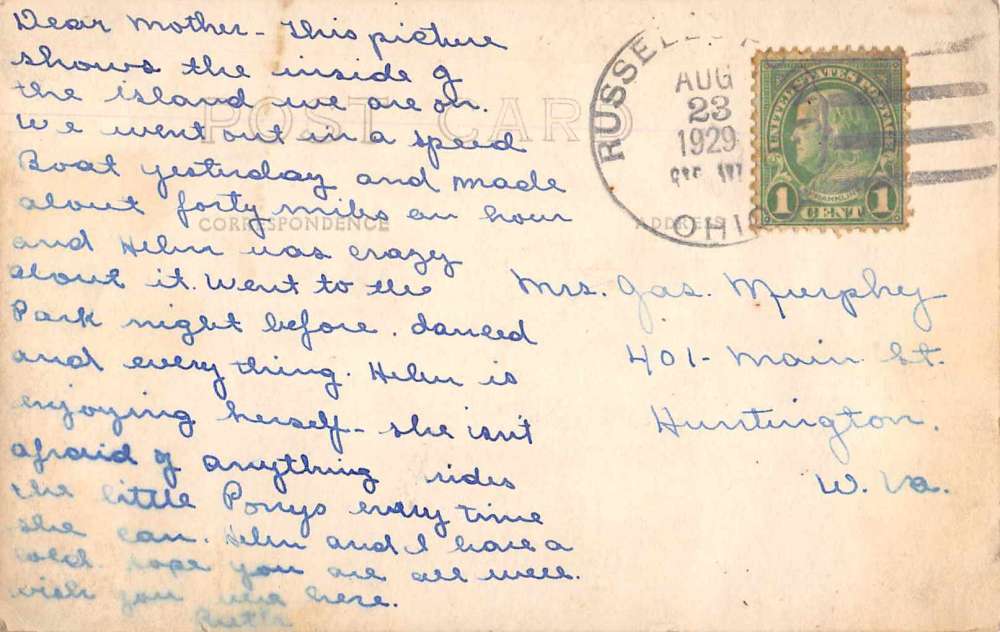 Dear Mother - This picture
shows the inside of
the island we are on.
We went out in a speed
Boat yesterday and made
about forty miles an hour
and Helen was crazy
about it. Went to the
Park night before. danced
and every thing. Helen is
enjoying herself - she isn't
afraid of anything rides
the little Ponys every time
she can. Helen and I have a
cold. hope you are all well.
wish you were here.
Ruth
POST CARD
CORRESPONDENCE
ADDRESS
RUSSELLS
AUG
23
1929
OHIO
UNITED STATES POSTAGE
FRANKLIN
1 CENT 1
Mrs. Jas. Murphy
401 - Main St.
Huntington.
W. Va.